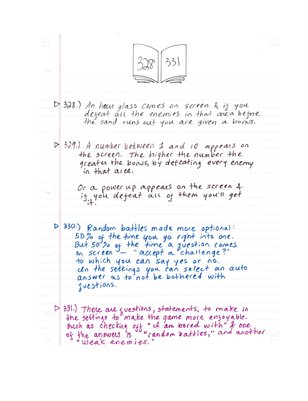 328
331
▷ 328.) An hour glass comes on screen & if you
defeat all the enemies in that area before
the sand runs out you are given a bonus.
▷ 329.) A number between 1 and 10 appears on
the screen. The higher the number the
greater the bonus, by defeating every enemy
in that area.
Or a power up appears on the screen &
if you defeat all of them you'll get
it.
▷ 330.) Random battles made more optional:
50% of the time you go right into one.
But 50% of the time a question comes
on screen — "accept a challenge?"
to which you can say yes or no.
In the settings you can select an auto
answer as to not be bothered with
questions.
▷ 331.) There are questions, statements, to make in
the settings to make the game more enjoyable.
Such as checking off "I am bored with" & one
of the answers is "random battles," and another
"weak enemies."